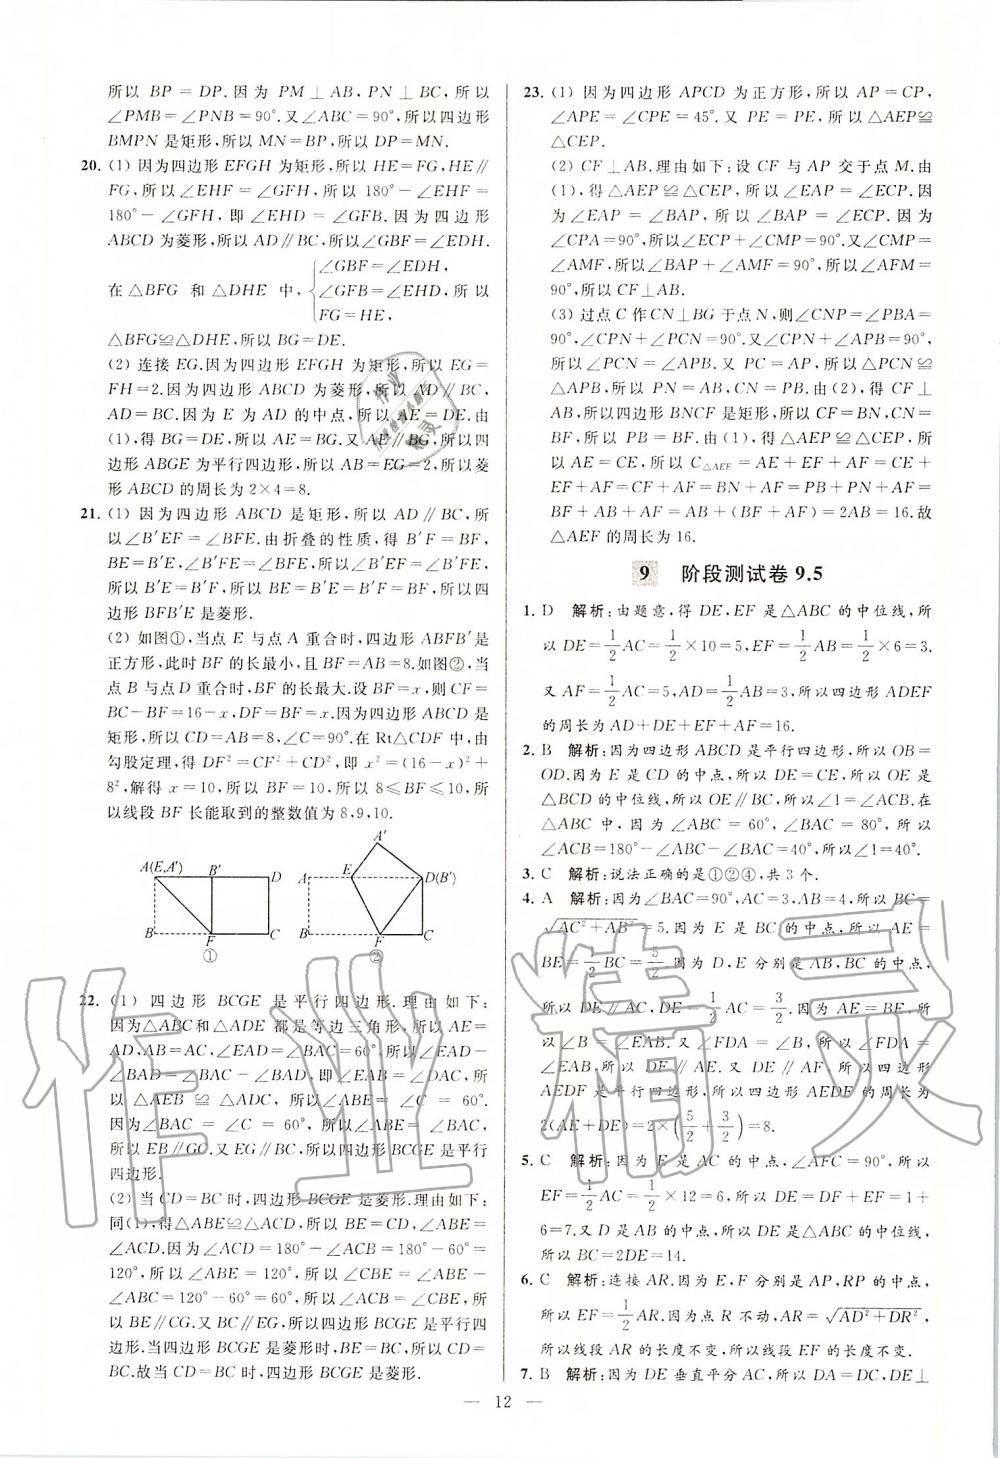 所以 BP=DP.因为 PM⊥AB,PN⊥BC,所以
∠PMB=∠PNB=90°.又∠ABC=90°,所以四边形
BMPN 是矩形,所以 MN=BP,所以 DP=MN.
20. (1) 因为四边形 EFGH 为矩形,所以 HE=FG,HE∥
FG,所以∠EHF=∠GFH,所以 180°-∠EHF=
180°-∠GFH,即∠EHD=∠GFB.因为四边形
ABCD 为菱形,所以 AD∥BC,所以∠GBF=∠EDH.
∠GBF=∠EDH,
在△BFG 和△DHE 中,{∠GFB=∠EHD,所以
FG=HE,
△BFG≌△DHE,所以 BG=DE.
(2) 连接 EG.因为四边形 EFGH 为矩形,所以 EG=
FH=2.因为四边形 ABCD 为菱形,所以 AD∥BC,
AD=BC.因为 E 为 AD 的中点,所以 AE=DE.由
(1),得 BG=DE,所以 AE=BG.又 AE∥BG,所以四
边形 ABGE 为平行四边形,所以 AB=EG=2,所以菱
形 ABCD 的周长为 2×4=8.
21. (1) 因为四边形 ABCD 是矩形,所以 AD∥BC,所
以∠B′EF=∠BFE.由折叠的性质,得 B′F=BF,
BE=B′E,∠B′FE=∠BFE,所以∠B′EF=∠B′FE,
所以 B′E=B′F,所以 B′F=BF=BE=B′E,所以四边
形 BFB′E 是菱形.
(2) 如图①,当点 E 与点 A 重合时,四边形 ABFB′是
正方形,此时 BF 的长最小,且 BF=AB=8.如图②,当
点 B 与点 D 重合时,BF 的长最大.设 BF=x,则 CF=
BC-BF=16-x,DF=BF=x.因为四边形 ABCD 是
矩形,所以 CD=AB=8,∠C=90°.在 Rt△CDF 中,由
勾股定理,得 DF²=CF²+CD²,即 x²=(16-x)²+
8²,解得 x=10,所以 BF=10,所以 8≤BF≤10,所
以线段 BF 长能取到的整数值为 8,9,10.
A(E,A′) B′ D
B F C
①
A′
A E D(B′)
B F C
②
22. (1) 四边形 BCGE 是平行四边形.理由如下:
因为△ABC和△ADE 都是等边三角形,所以 AE=
AD,AB=AC,∠EAD=∠BAC=60°,所以∠EAD-
∠BAD=∠BAC-∠BAD,即∠EAB=∠DAC,所
以△AEB≌△ADC,所以∠ABE=∠C=60°.
因为∠BAC=∠C=60°,所以∠ABE=∠BAC,
所以 EB∥GC.又 EG∥BC,所以四边形 BCGE 是平行
四边形.
(2) 当 CD=BC 时,四边形 BCGE 是菱形.理由如下:
同(1),得△ABE≌△ACD,所以 BE=CD,∠ABE=
∠ACD.因为∠ACD=180°-∠ACB=180°-60°=
120°,所以∠ABE=120°,所以∠CBE=∠ABE-
∠ABC=120°-60°=60°,所以∠ACB=∠CBE,所
以 BE∥CG.又 BC∥GE,所以四边形 BCGE 是平行四
边形.当四边形 BCGE 是菱形时,BE=BC,所以 CD=
BC.故当 CD=BC 时,四边形 BCGE 是菱形.
23. (1) 因为四边形 APCD 为正方形,所以 AP=CP,
∠APE=∠CPE=45°.又 PE=PE,所以△AEP≌
△CEP.
(2) CF⊥AB.理由如下:设 CF 与 AP 交于点 M.由
(1),得△AEP≌△CEP,所以∠EAP=∠ECP.因
为∠EAP=∠BAP,所以∠BAP=∠ECP.因为
∠CPA=90°,所以∠ECP+∠CMP=90°.又∠CMP=
∠AMF,所以∠BAP+∠AMF=90°,所以∠AFM=
90°,所以 CF⊥AB.
(3) 过点 C 作CN⊥BG 于点 N,则∠CNP=∠PBA=
90°,∠CPN+∠PCN=90°.又∠CPN+∠APB=90°,
所以∠PCN=∠APB.又 PC=AP,所以△PCN≌
△APB,所以 PN=AB,CN=PB.由(2),得 CF⊥
AB,所以四边形 BNCF 是矩形,所以 CF=BN,CN=
BF,所以 PB=BF.由(1),得△AEP≌△CEP,所
以 AE=CE,所以 C△AEF=AE+EF+AF=CE+
EF+AF=CF+AF=BN+AF=PB+PN+AF=
BF+AB+AF=AB+(BF+AF)=2AB=16.故
△AEF 的周长为 16.
9 阶段测试卷 9.5
1. D 解析:由题意,得 DE,EF 是△ABC 的中位线,所
以 DE=1/2 AC=1/2×10=5,EF=1/2 AB=1/2×6=3.
又 AF=1/2 AC=5,AD=1/2 AB=3,所以四边形 ADEF
的周长为 AD+DE+EF+AF=16.
2. B 解析:因为四边形 ABCD 是平行四边形,所以 OB=
OD.因为 E 是 CD 的中点,所以 DE=CE,所以 OE 是
△BCD 的中位线,所以 OE∥BC,所以∠1=∠ACB.在
△ABC 中,因为∠ABC=60°,∠BAC=80°,所以
∠ACB=180°-∠ABC-∠BAC=40°,所以∠1=40°.
3. C 解析:说法正确的是①②④,共 3 个.
4. A 解析:因为∠BAC=90°,AC=3,AB=4,所以 BC=
√(AC²+AB²)=5.因为 E 是 BC 的中点,所以 AE=
BE=1/2 BC=5/2.因为 D,E 分别是 AB,BC 的中点,所
以 DE∥AC,DE=1/2 AC=3/2.因为 AE=BE,所
以∠B=∠EAB.又∠FDA=∠B,所以∠FDA=
∠EAB,所以 DF∥AE.又 DE∥AF,所以四边形
AEDF 是平行四边形,所以四边形 AEDF 的周长为
2(AE+DE)=2×(5/2+3/2)=8.
5. C 解析:因为 E 是 AC 的中点,∠AFC=90°,所以
EF=1/2 AC=1/2×12=6,所以 DE=DF+EF=1+
6=7.又 D 是 AB 的中点,所以 DE 是△ABC 的中位线,
所以 BC=2DE=14.
6. C 解析:连接 AR.因为 E,F 分别是 AP,RP 的中点,
所以 EF=1/2 AR.因为点 R 不动,AR=√(AD²+DR²),
所以 AR 的长度不变,所以线段 EF 的长度不变.
7. B 解析:因为 DE 垂直平分 AC,所以 DA=DC,DE⊥
— 12 —
作业精灵